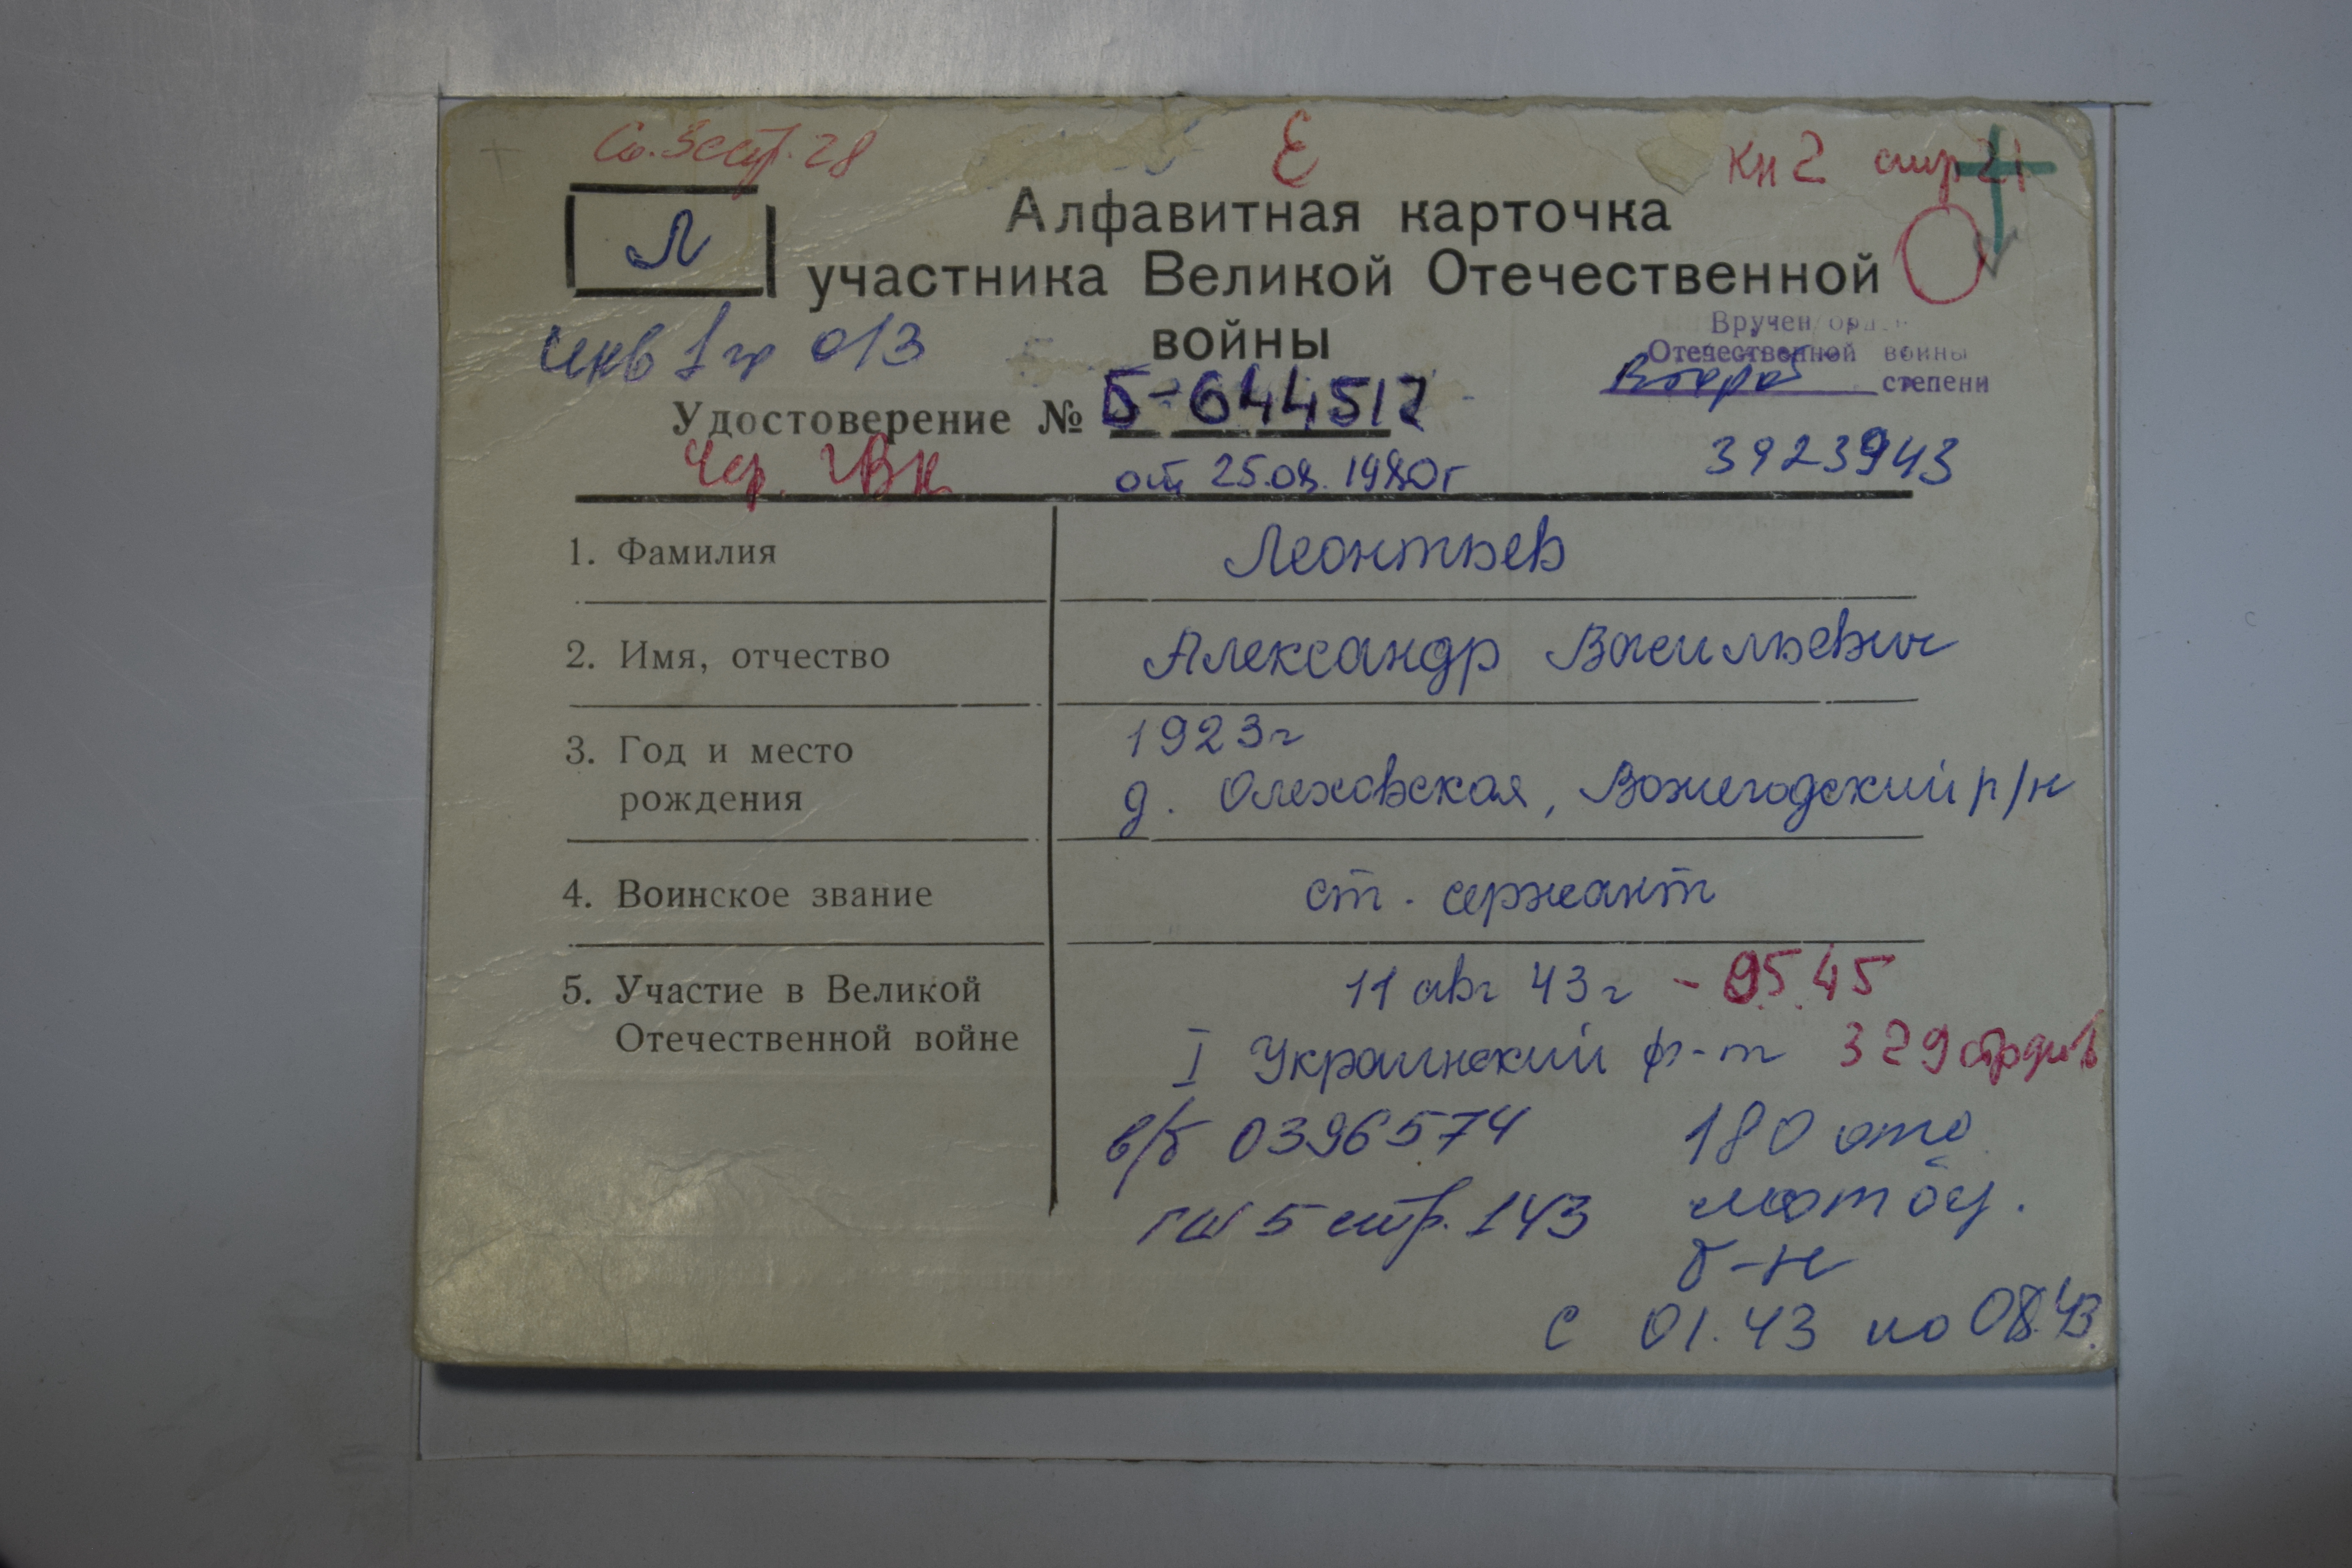 Со. 3 стр. 28
Е
Кн 2 стр 21
Л
Алфавитная карточка
участника Великой Отечественной
войны
инв 1 гр 013
Вручен орден
Отечественной войны
второй степени
3923943
Удостоверение № Б-644517
Чер. ГВК
от 25.08.1980г
1. Фамилия Леонтьев
2. Имя, отчество Александр Васильевич
3. Год и место
рождения
1923г
д. Олеховская, Вожегодский р/н
4. Воинское звание ст. сержант
5. Участие в Великой
Отечественной войне
11 авг 43г - 9.5.45
I Украинский ф-т 329 стр див
в/б 0396574
ГШ 5 стр. 143
180 отд
б-н
с 01.43 по 08.43.